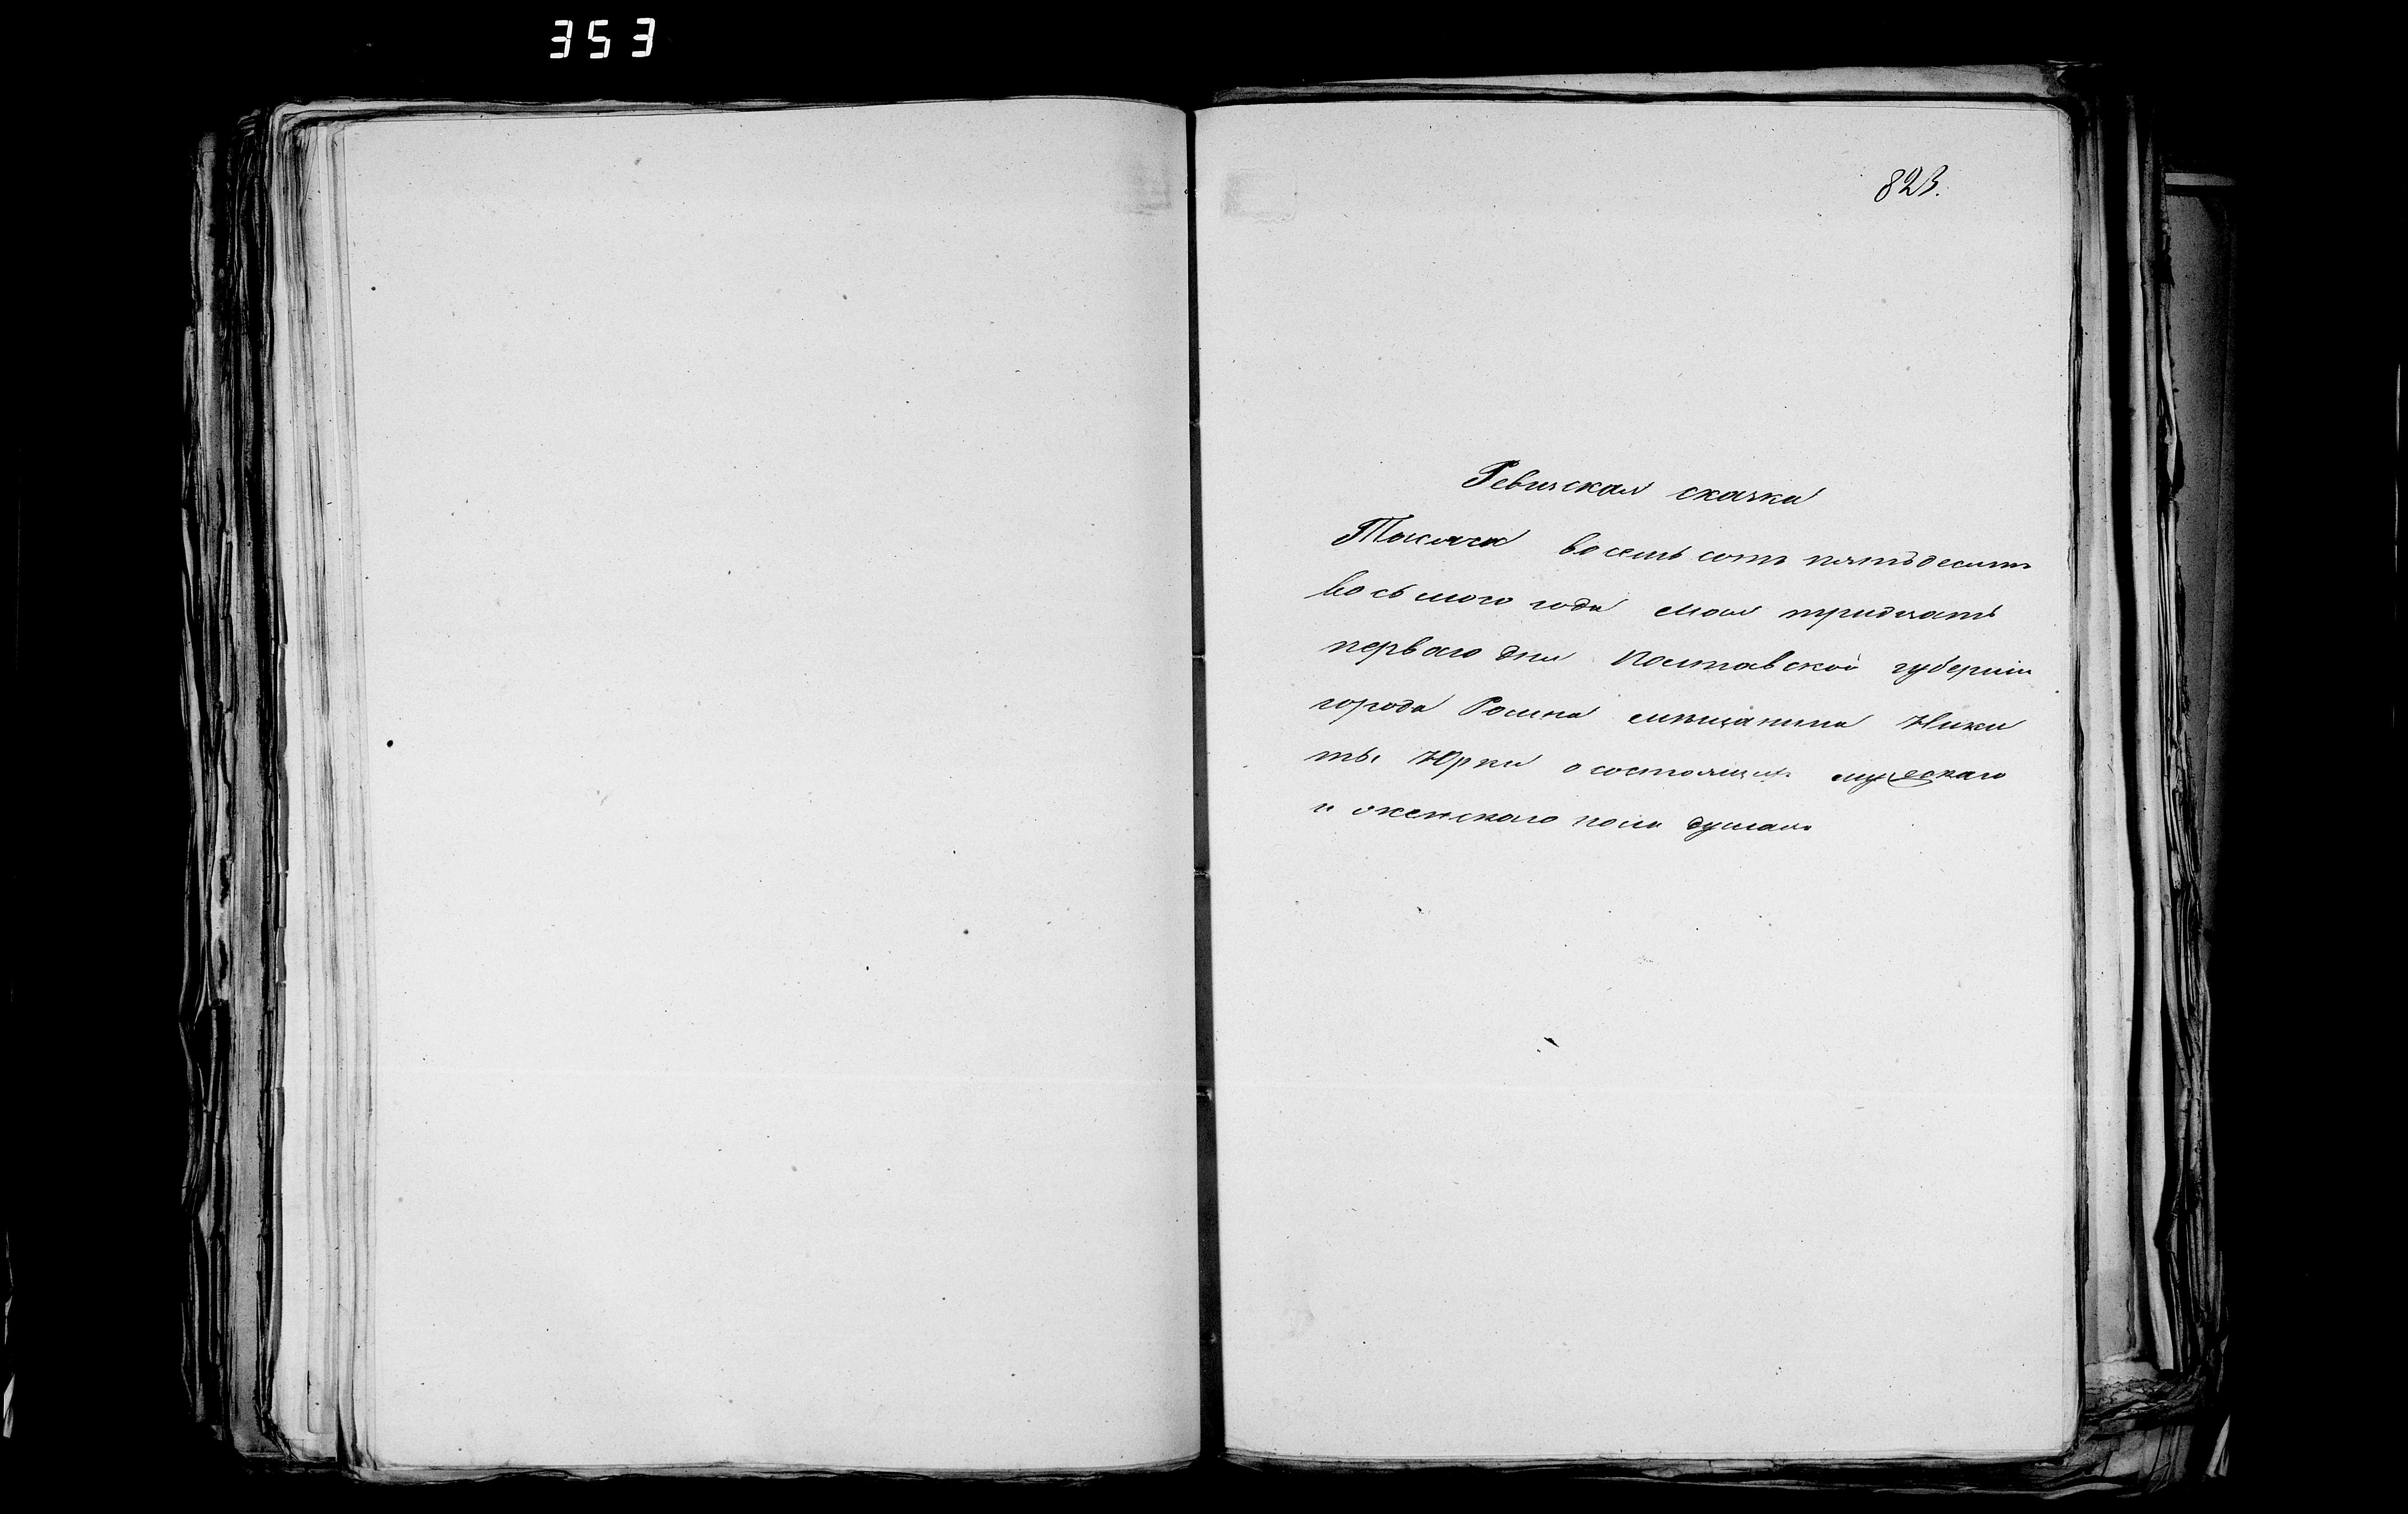 353
823.
Ревизская сказка
Тысяча восемь сотъ пятьдесятъ
восьмого года мая тридцать
перваго дня Полтавской губерніи
города Ромна мѣщанина Ники
ты Юрки о состоящихъ мужескаго
и женскаго пола душахъ